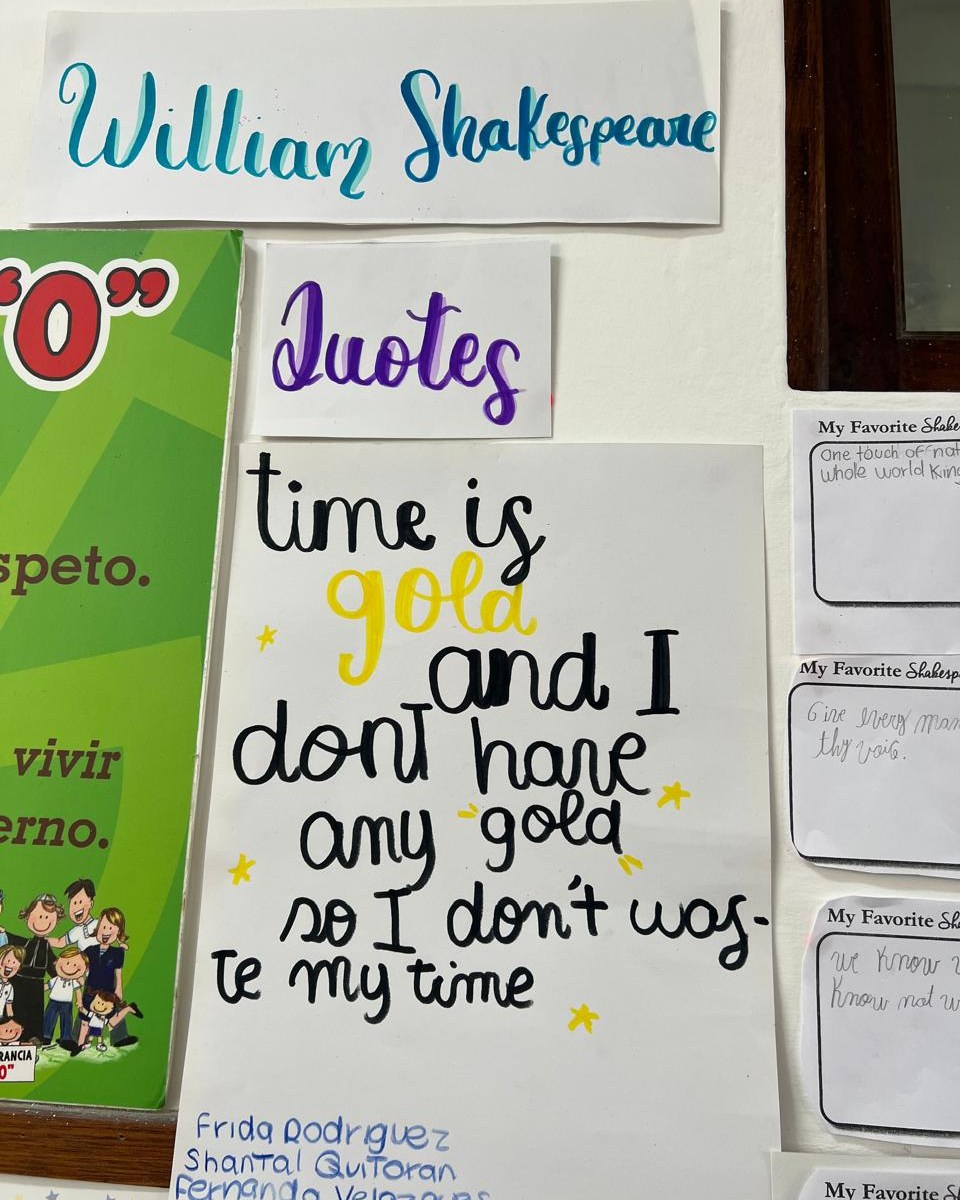 William Shakespeare
Quotes
time is
gold
and I
dont have
any gold
so I don't was-
te my time
Frida Rodriguez
Shantal Quitoran
Fernanda
"0"
speto.
vivir
erno.
RANCIA
0"
My Favorite Shake
One touch of nat
whole world kin
My Favorite Shakesp
Give every man
thy voice.
My Favorite Sh
we know w
know not w
My Favorite Sh